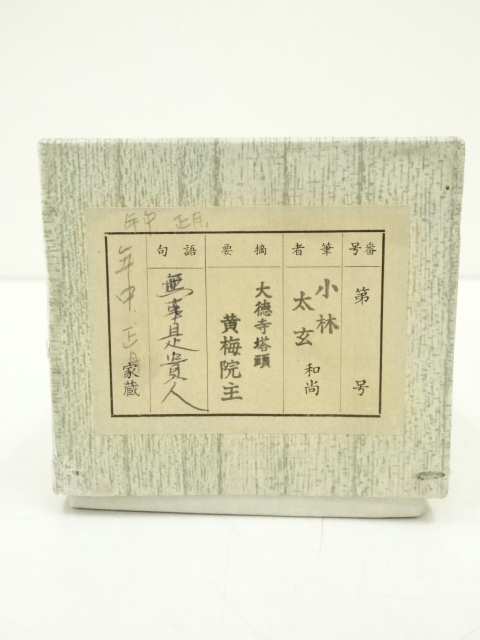 年中 正月
番号
第 号
筆者
小林太玄 和尚
摘要
大徳寺塔頭
黄梅院主
語句
無事是貴人
年中 正月
家蔵